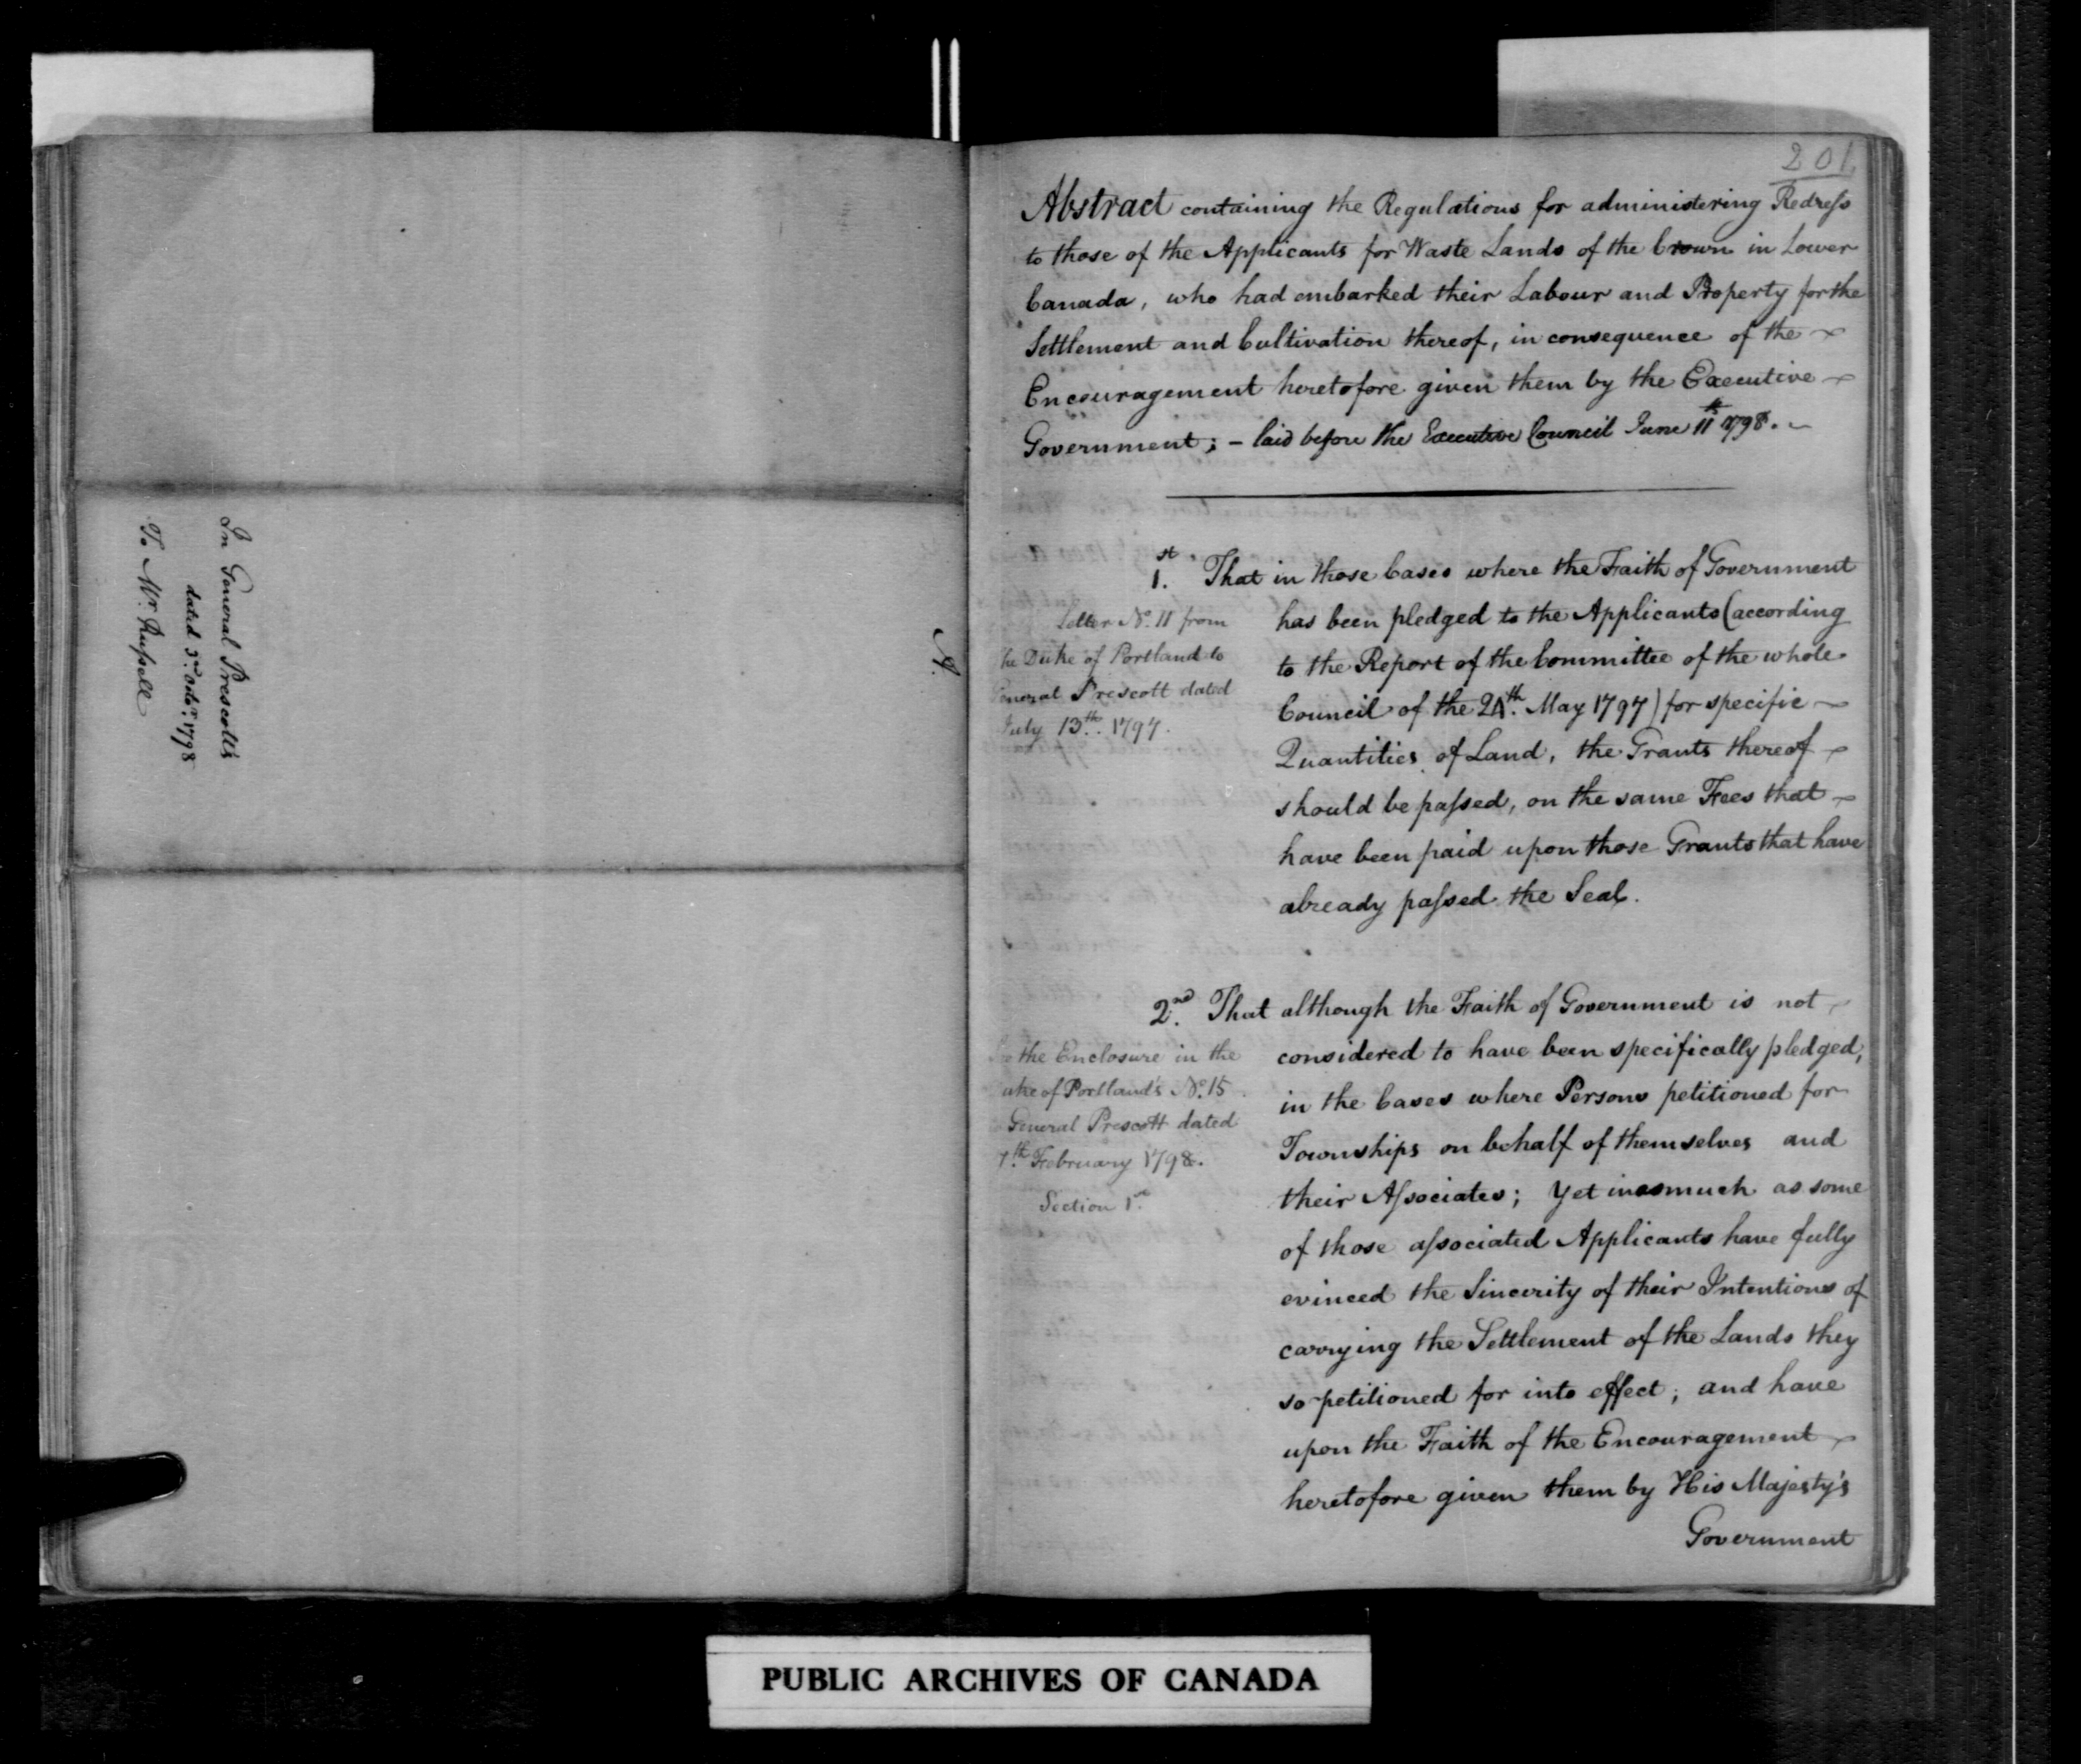 In General Prescott's
dated 3rd Octor. 1798
To Mr. Russell
A.
201
Abstract containing the Regulations for administering Redress
to those of the Applicants for Waste Lands of the Crown in Lower
Canada, who had embarked their Labour and Property for the
Settlement and Cultivation thereof, in consequence of the
Encouragement heretofore given them by the Executive
Government; - laid before the Executive Council June 11th 1798.
1.st That in those Cases where the Faith of Government
has been pledged to the Applicants (according
to the Report of the Committee of the whole
Council of the 24th. May 1797) for specific
Quantities of Land, the Grants thereof
should be passed, on the same Fees that
have been paid upon those Grants that have
already passed the Seal.
Letter No. 11 from
he Duke of Portland to
General Prescott dated
July 13th. 1797.
2.nd That although the Faith of Government is not
considered to have been specifically pledged,
in the Cases where Persons petitioned for
Townships on behalf of themselves and
their Associates; Yet inasmuch as some
of those associated Applicants have fully
evinced the Sincerity of their Intentions of
carrying the Settlement of the Lands they
so petitioned for into effect; and have
upon the Faith of the Encouragement
heretofore given them by His Majesty's
Government
the Enclosure in the
uke of Portland's No. 15
General Prescott dated
7.th February 1798.
Section 1st
PUBLIC ARCHIVES OF CANADA